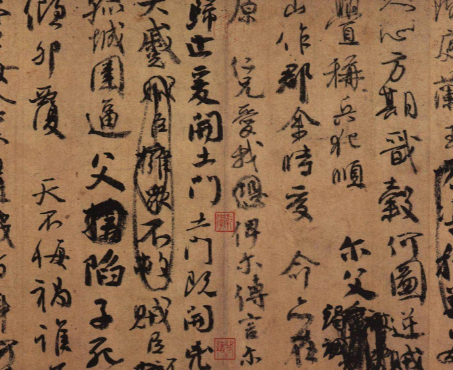 庭蘭玉
心方期戩穀何圖逆賊
釁稱兵犯順 尔父
山作郡余時受 命亦在
原 仁兄愛我俾尔傳言尔
歸止爰開土門土門既開兇
大蹙賊臣擁眾不救賊臣
孤城圍逼父陷子死
傾卵覆 天不悔禍誰